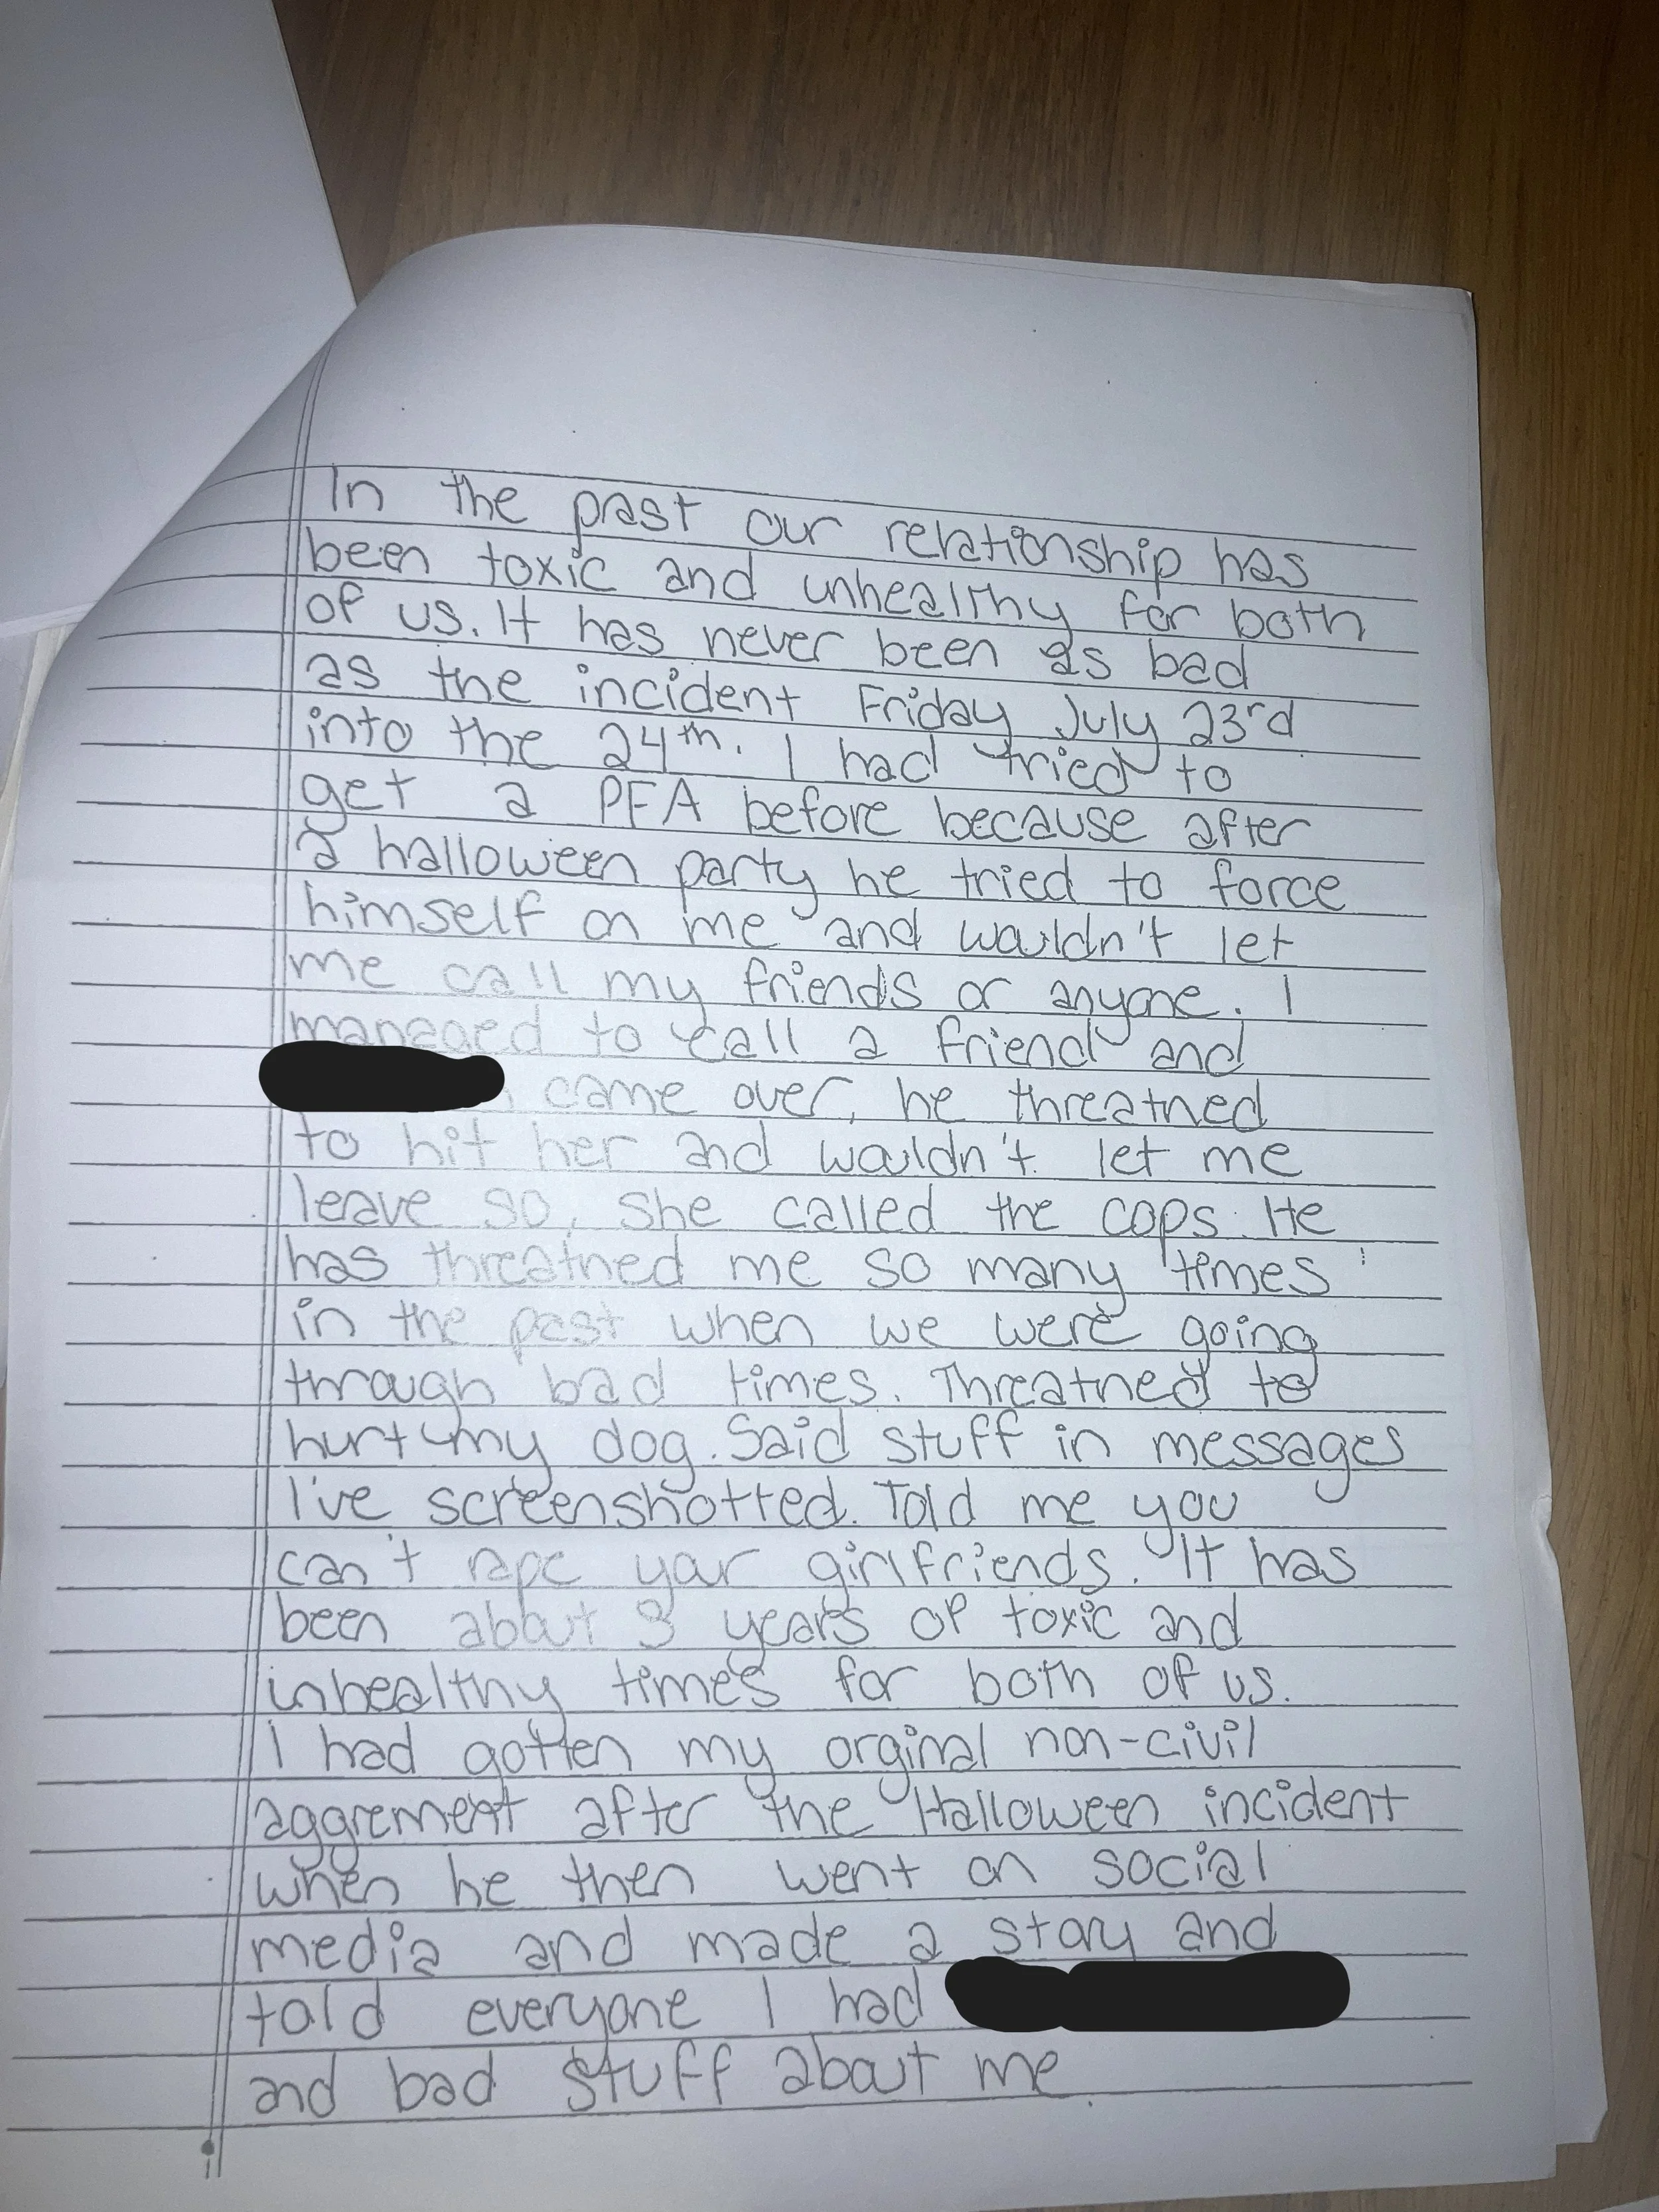 In the past our relationship has
been toxic and unhealthy for both
of us. It has never been as bad
as the incident Friday July 23rd
into the 24th. I had tried to
get a PFA before because after
a halloween party he tried to force
himself on me and wouldn't let
me call my friends or anyone. I
managed to call a friend and
came over, he threatned
to hit her and wouldn't let me
leave so, she called the cops. He
has threatned me so many times
in the past when we were going
through bad times. Threatned to
hurt my dog. Said stuff in messages
I've screenshotted. Told me you
can't rape your girlfriends. It has
been about 3 years of toxic and
unhealthy times for both of us.
I had gotten my orginal non-civil
aggrement after the Halloween incident
when he then went on social
media and made a story and
told everyone I had
and bad stuff about me.